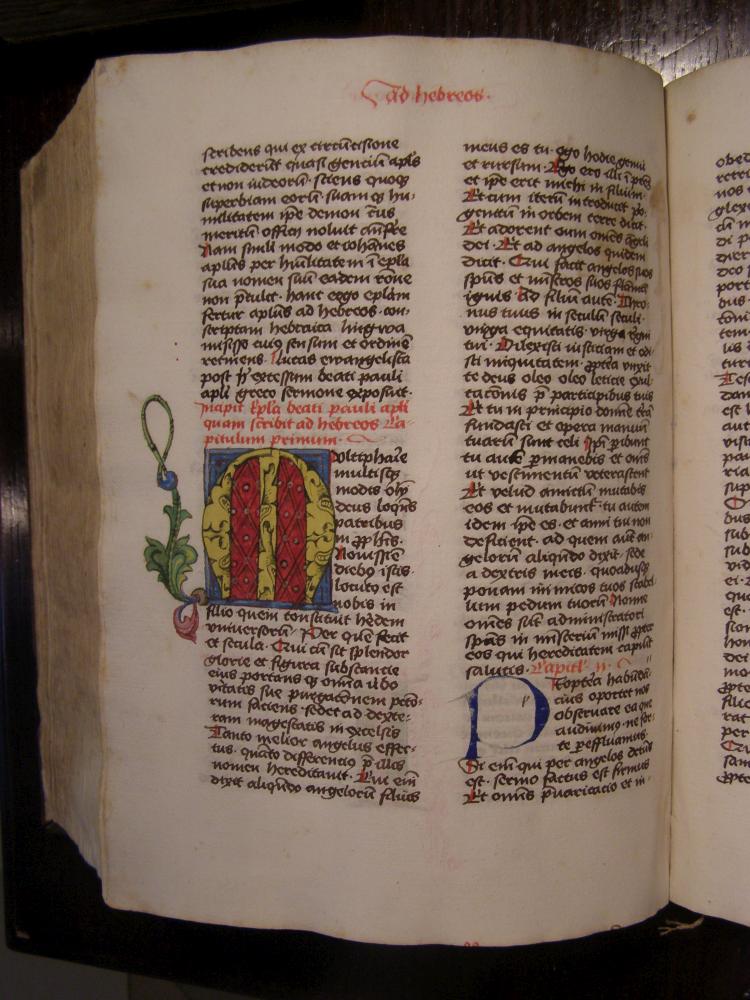 ad hebreos.
scribens qui ex circūcisione
crediderūt quasi genciū apl̄s
et non iudeorū. sciens quoq̨
superbiam eorū. suam q̨ hu-
militatem ip̄e demon s̄t̄rās
meritū officij noluit anf̄rē
Nam simili modo et iohānes
apl̄us per hūilitatem ī ep̄la
sua nomen suū eadem rōne
non p̄tulit. hanc ergo ep̄lam
fertur apl̄us ad hebreos con-
scriptam hebraica lingwa
misisse cuiꝯ sensum et ordinē
retinens. lucas ewangelista
post h̄ excessum beati pauli
apl̄i greco sermone exposuit.
Incipit Ep̄la beati pauli apl̄i
quam scribit ad hebreos Ca-
pitulum primum.
Multiphaīe
multisq̨
modis olī
deus loquēs
patribus
in ꝓph̄is.
Nouissīe
diebꝯ istis
locutꝯ est
nobis in
filio quem constituit h̄edem
vniuersorū. Per quē fecit
et secula. Qui cū sit splendor
glorie et figura substancie
eius portans q̨ omīa v̄bo
v̄tutis sue purgac̄onem pcc̄o-
rum faciens. sedet ad dexte-
ram magestatis in excelsis
Tanto melior angelus effec-
tus. quāto differenciꝯ p̄ illis
nomen hereditauit. Cui em̄
dixit aliqn̄do angelorū filius
meus es tu. ego hodie genui
et rursum. Ego ero illi ī p̄rē
et ip̄e erit michi in filium.
Et cum iterū introducit p̄o-
genitū in orbem terre dicit.
Et adorent eum om̄es āgeli
dei. Et ad angelos quidem
dicit. Qui facit angelos suos
sp̄us et mīstros suos flāmā
ignis. Ad filiū autē. Thro-
nus tuus in seculū seculi.
virga equitatis. virga regni
tui. Dilexisti iusticiam et odi-
sti iniquitatem. ꝓpt̄ea vnxit
te deus oleo leticie exul-
tac̄onis p̄ participibus tuis
Et tu in principio domine t̄rā
fundasti et opera manuū
tuarū sunt celi Ip̄i ꝑibunt
tu autē ꝑmanebis et om̄s
ut vestimentū veterascent
Et velud amictū mutabis
eos et mutabunt̄. tu autem
idem ip̄e es. et anni tui non
deficient. ad quem autē an-
gelorū aliqn̄do dixit. sede
a dextris meis. quoadusq̨
ponam inimicos tuos scabel-
lum pedum tuorū Nonne
om̄es sūt administratorij
sp̄us in mīsteriū missi ꝓpter
eos qui hereditatem capiūt
salutis. Capitl̄m ij
Propterea habūdā-
cius oportet nos
obseruare ea que
audiuimꝯ. ne for-
te ꝑeffluamus.
Si em̄ qui per angelos dictꝯ
est. sermo factus est firmus
Et omnis p̄uaricacio et in-